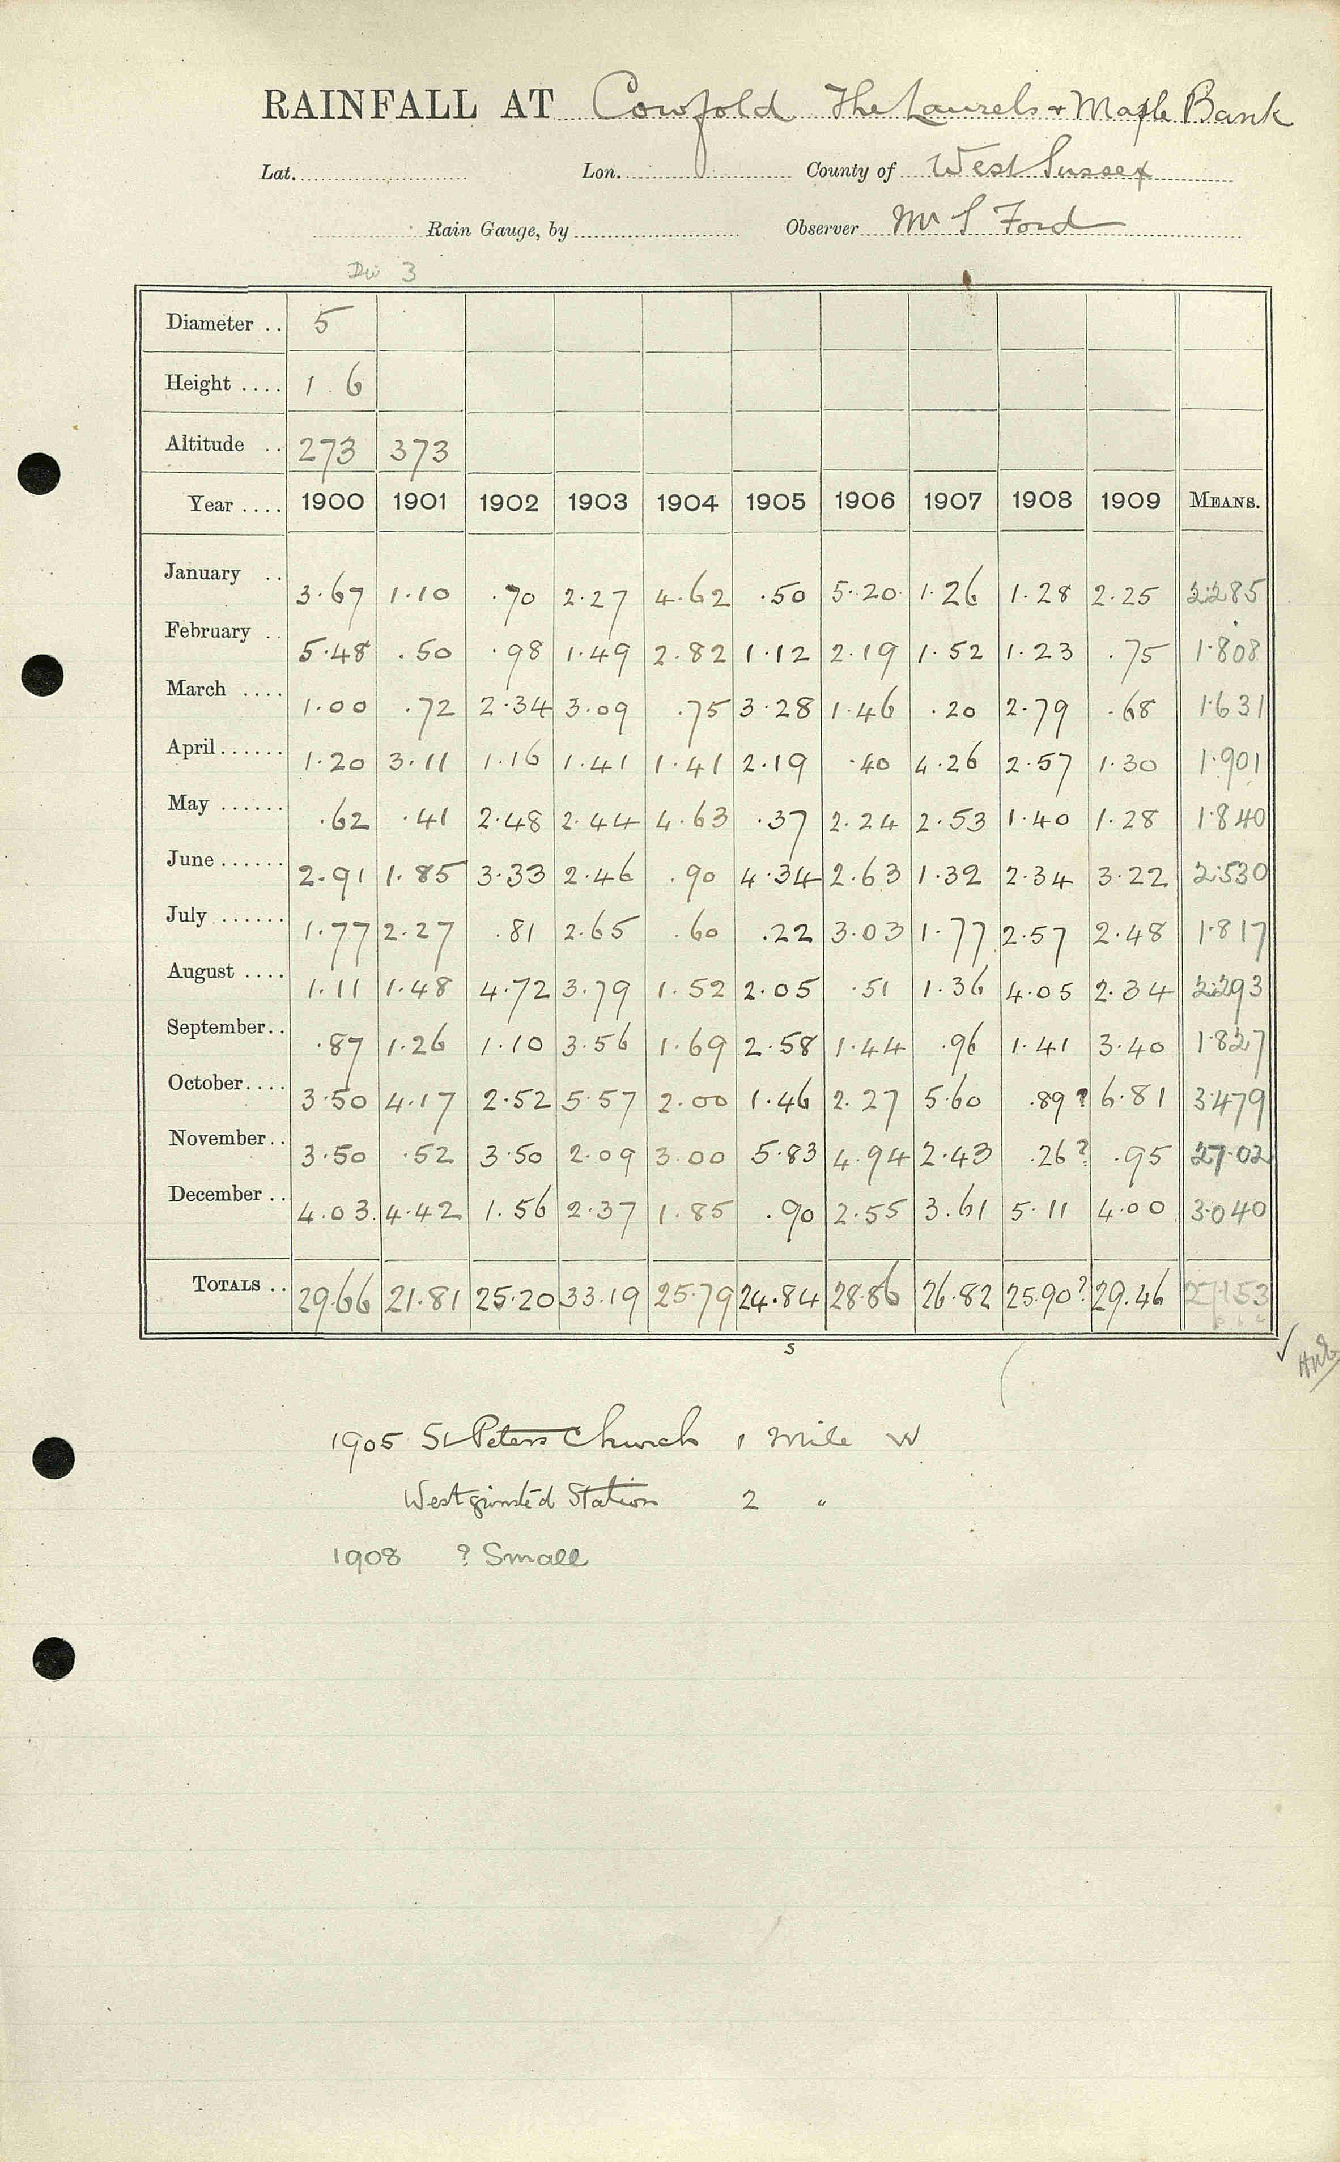 RAINFALL AT Cowfold The Laurels & Maple Bank
Lat. Lon. County of West Sussex
Rain Gauge, by Observer Mr S Ford
Div 3
Diameter .. 5
Height .... 1 . 6
Altitude .. 273 373
Year .... 1900 1901 1902 1903 1904 1905 1906 1907 1908 1909 MEANS.
January .. 3.67 1.10 .70 2.27 4.62 .50 5.20 1.26 1.28 2.25 2.285
February .. 5.48 .50 .98 1.49 2.82 1.12 2.19 1.52 1.23 .75 1.808
March .... 1.00 .72 2.34 3.09 .75 3.28 1.46 .20 2.79 .68 1.631
April ...... 1.20 3.11 1.16 1.41 1.41 2.19 .40 4.26 2.57 1.30 1.901
May ...... .62 .41 2.48 2.44 4.63 .37 2.24 2.53 1.40 1.28 1.840
June ...... 2.91 1.85 3.33 2.46 .90 4.34 2.63 1.32 2.34 3.22 2.530
July ...... 1.77 2.27 .81 2.65 .60 .22 3.03 1.77 2.57 2.48 1.817
August .... 1.11 1.48 4.72 3.79 1.52 2.05 .51 1.36 4.05 2.34 2.293
September .. .87 1.26 1.10 3.56 1.69 2.58 1.44 .96 1.41 3.40 1.827
October .... 3.50 4.17 2.52 5.57 2.00 1.46 2.27 5.60 .89? 6.81 3.479
November .. 3.50 .52 3.50 2.09 3.00 5.83 4.94 2.43 .26? .95 27.02
December .. 4.03 4.42 1.56 2.37 1.85 .90 2.55 3.61 5.11 4.00 3.040
TOTALS .. 29.66 21.81 25.20 33.19 25.79 24.84 28.86 26.82 25.90? 29.46 27.153
s
1905 St Peters Church 1 Mile W
Westgrinsted Station 2 "
1908 ? Small